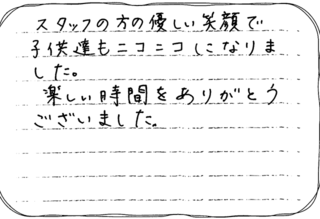 スタッフの方の優しい笑顔で
子供達もニコニコになりま
した。
楽しい時間をありがとう
ございました。